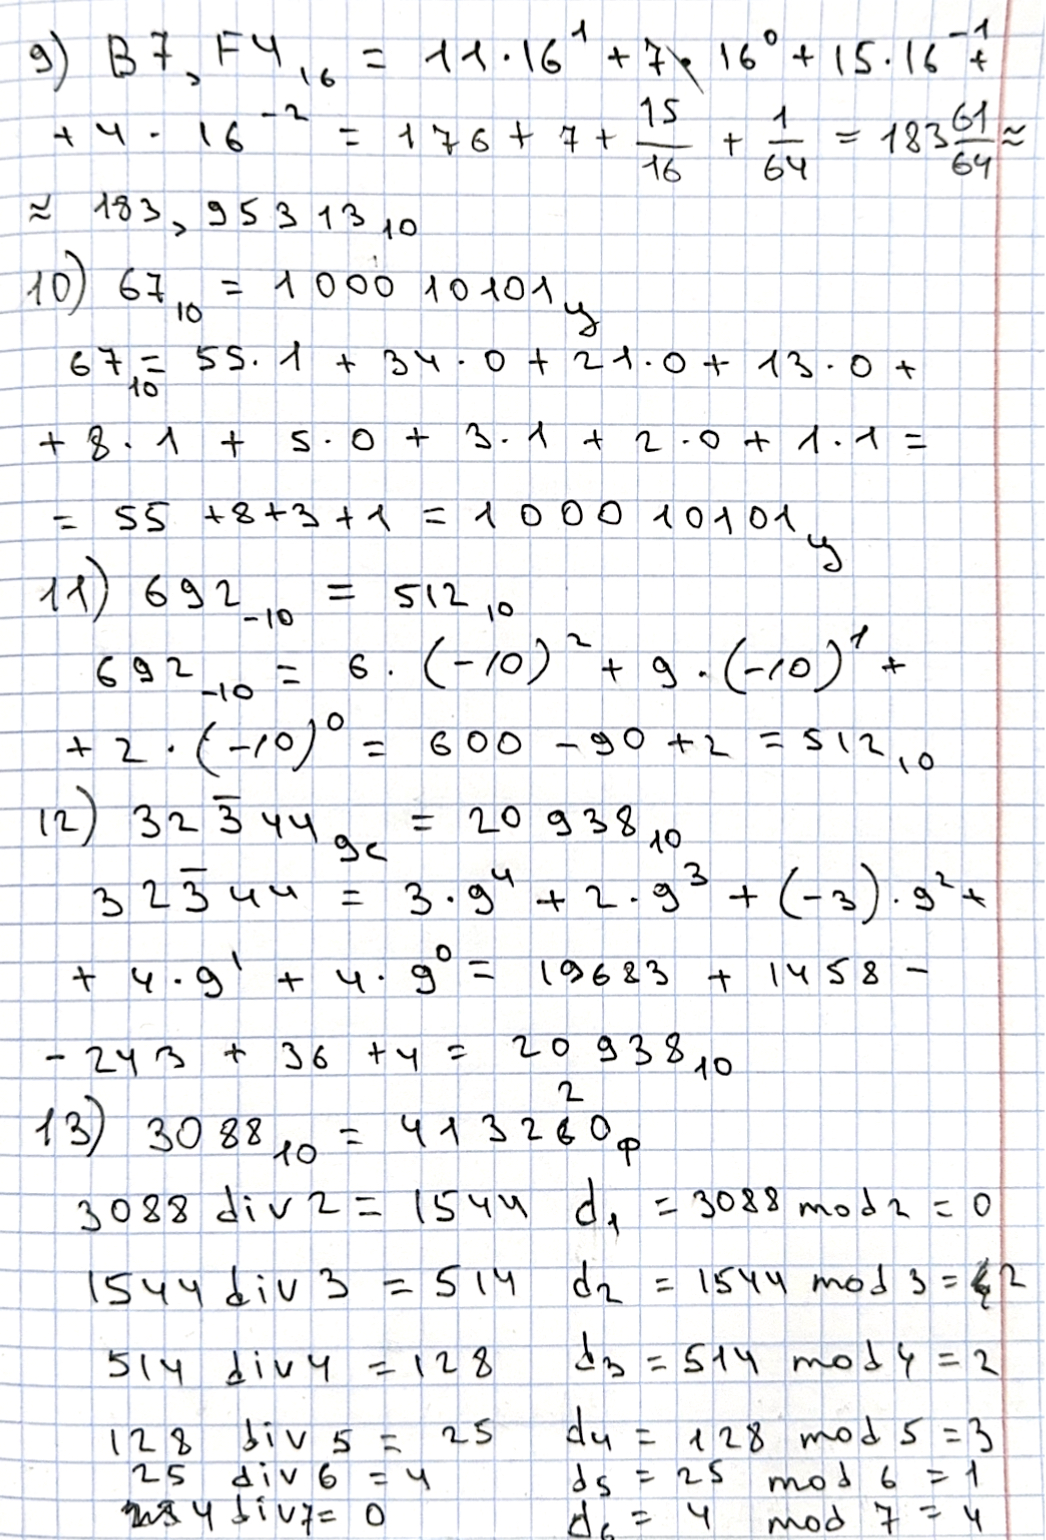 9) B7,F4₁₆ = 11·16¹ + 7· 16⁰ + 15·16⁻¹ +
+ 4 · 16⁻² = 176 + 7 + 15/16 + 1/64 = 183 61/64 ≈
≈ 183,95313₁₀
10) 67₁₀ = 100010101ᵧ
67₁₀ = 55·1 + 34·0 + 21·0 + 13·0 +
+ 8·1 + 5·0 + 3·1 + 2·0 + 1·1 =
= 55 +8+3+1 = 100010101ᵧ
11) 692₋₁₀ = 512₁₀
692₋₁₀ = 6·(-10)² + 9·(-10)¹ +
+ 2·(-10)⁰ = 600 - 90 + 2 = 512₁₀
12) 323̅44₉c = 20938₁₀
323̅44 = 3·9⁴ + 2·9³ + (-3)·9² +
+ 4·9¹ + 4·9⁰ = 19683 + 1458 -
- 243 + 36 + 4 = 20938₁₀
13) 3088₁₀ = 413220ф
3088 div 2 = 1544 d₁ = 3088 mod 2 = 0
1544 div 3 = 514 d₂ = 1544 mod 3 = 2
514 div 4 = 128 d₃ = 514 mod 4 = 2
128 div 5 = 25 d₄ = 128 mod 5 = 3
25 div 6 = 4 d₅ = 25 mod 6 = 1
4 div 7 = 0 d₆ = 4 mod 7 = 4